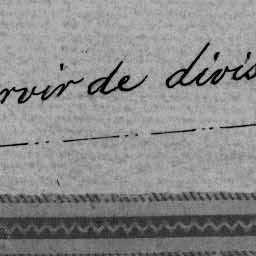 rvoir de divis